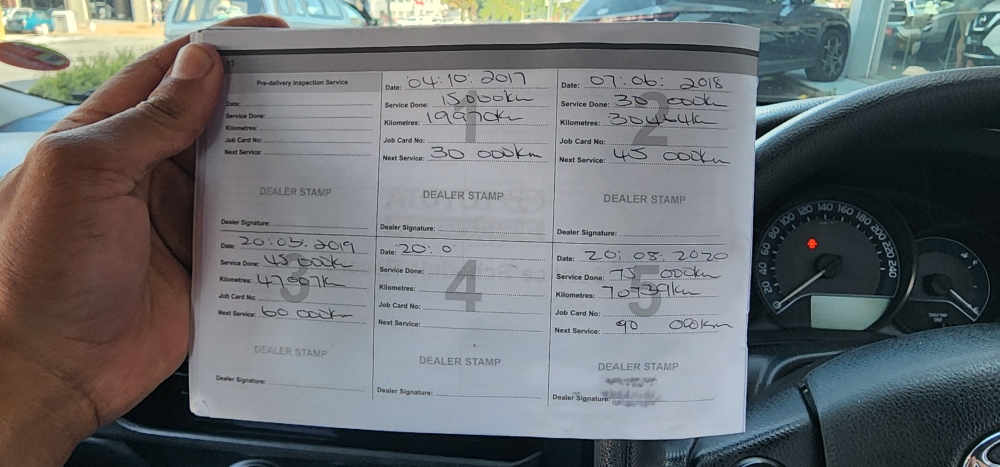 13
Pre-delivery Inspection Service
Date:
Service Done:
Kilometres:
Job Card No:
Next Service:
DEALER STAMP
Dealer Signature:
Date: 04:10:2017
Service Done: 15000km
Kilometres: 19970km
Job Card No:
Next Service: 30 000km
1
DEALER STAMP
Dealer Signature:
Date: 07:06:2018
Service Done: 30 000km
Kilometres: 30464km
Job Card No:
Next Service: 45 000km
2
DEALER STAMP
Dealer Signature:
Date: 20:05:2019
Service Done: 45 000km
Kilometres:
Job Card No:
Next Service: 60 000km
3
DEALER STAMP
Dealer Signature:
Date: 20:0
Service Done:
Kilometres:
Job Card No:
Next Service:
4
DEALER STAMP
Dealer Signature:
Date: 20:08:2020
Service Done: 75 000km
Kilometres: 70739km
Job Card No:
Next Service: 90 000km
5
DEALER STAMP
Dealer Signature:
0 20 40 60 80 100 120 140 160 180 200 220 240